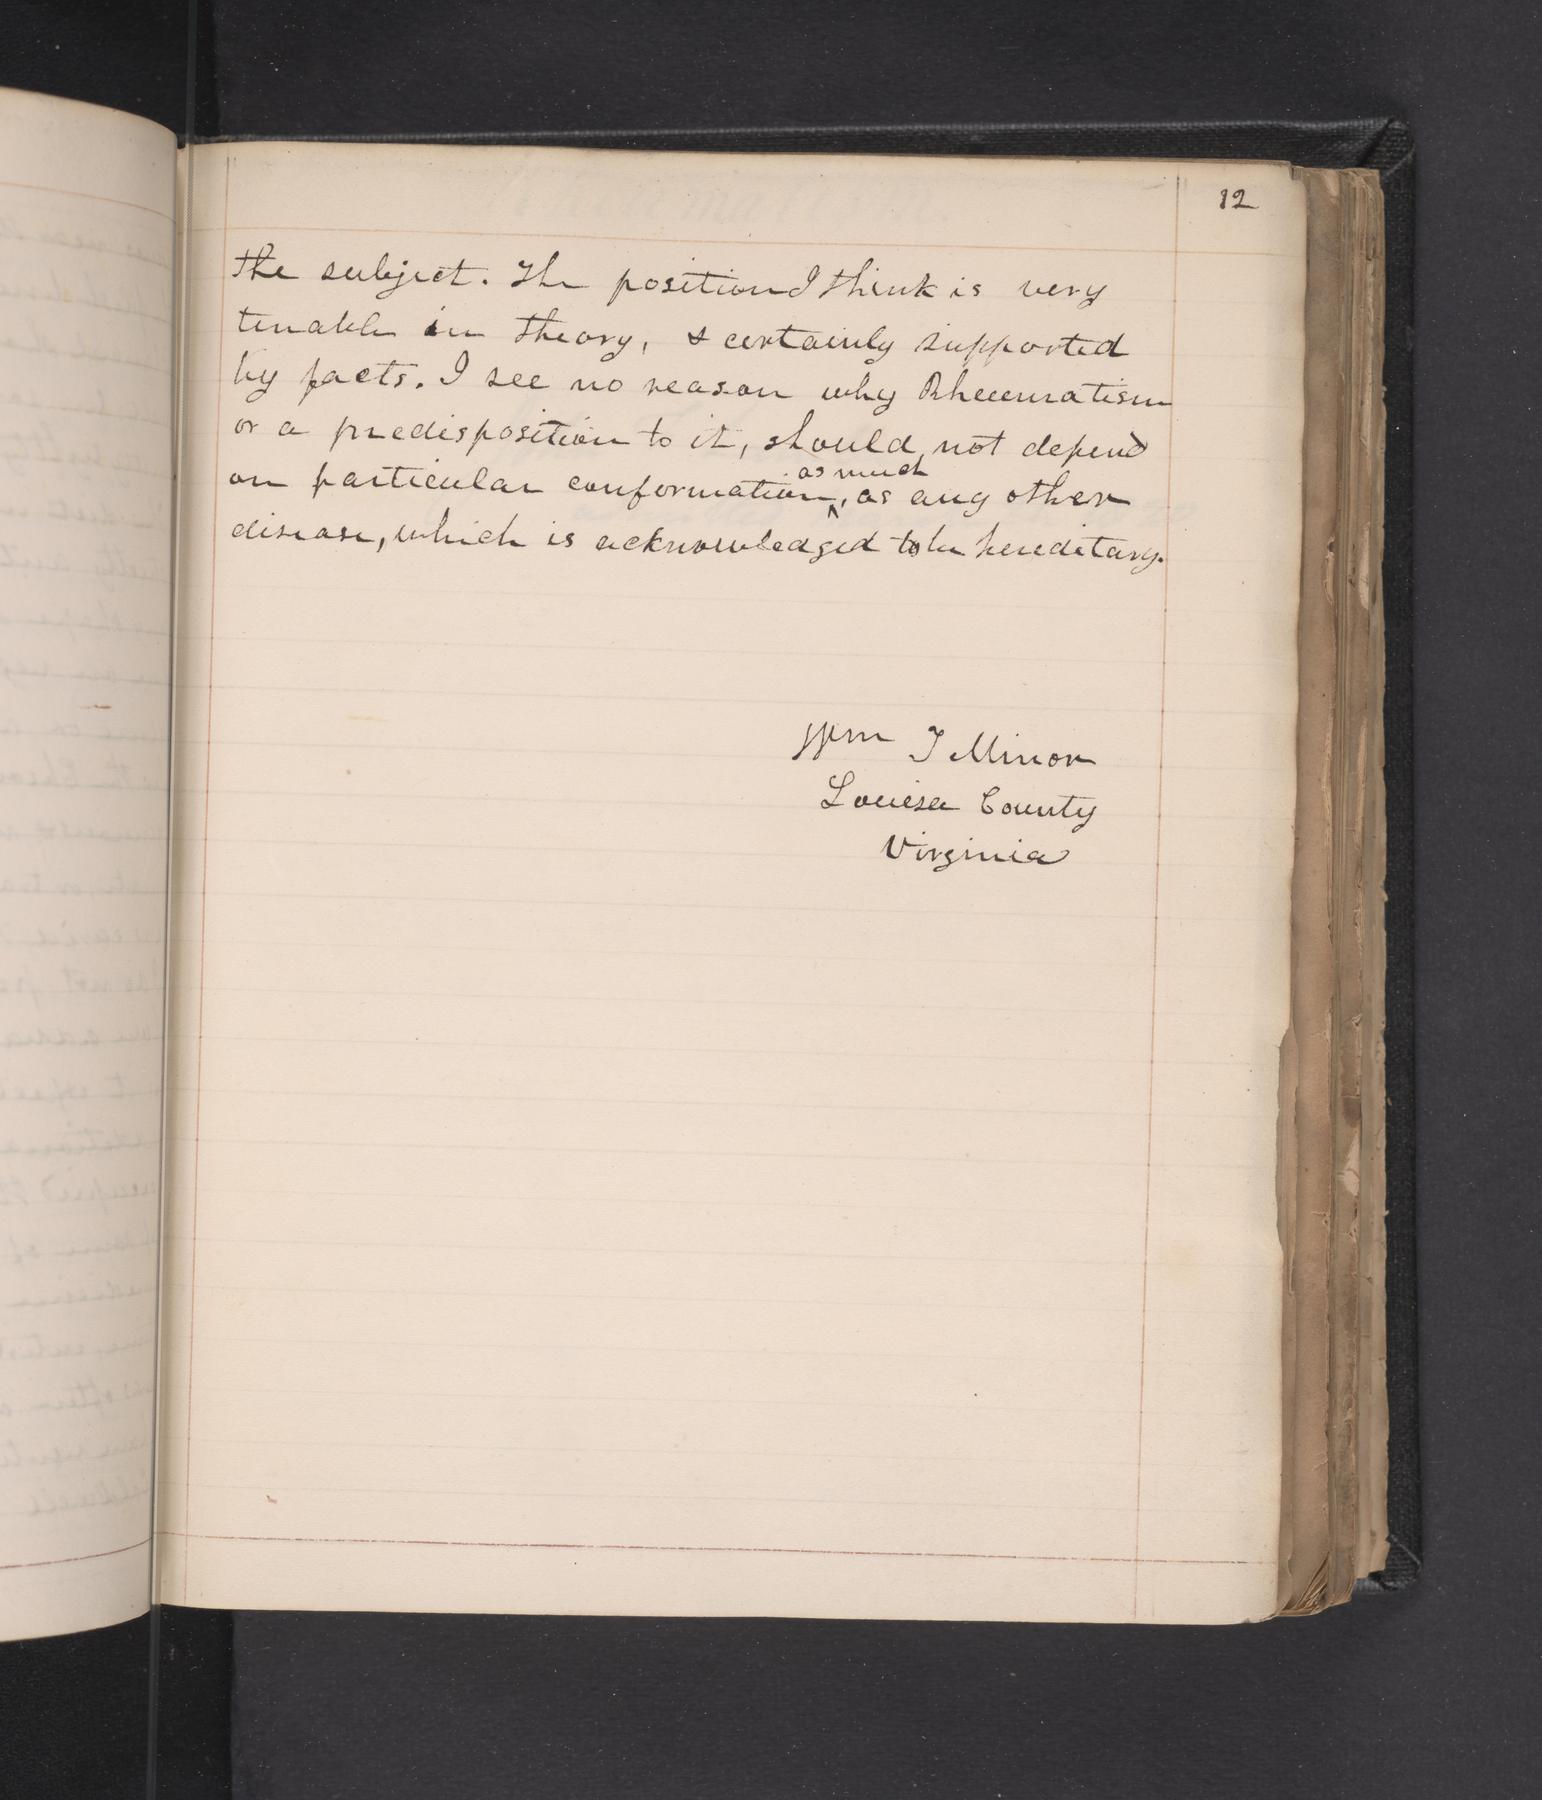 12
the subject. The position I think is very
tenable in theory, & certainly supported
by facts. I see no reason why Rheumatism
or a predisposition to it, should, not depend
as much
on particular conformation, as any other
disease, which is acknowledged to be hereditary.
Wm T Minor
Louisa County
Virginia